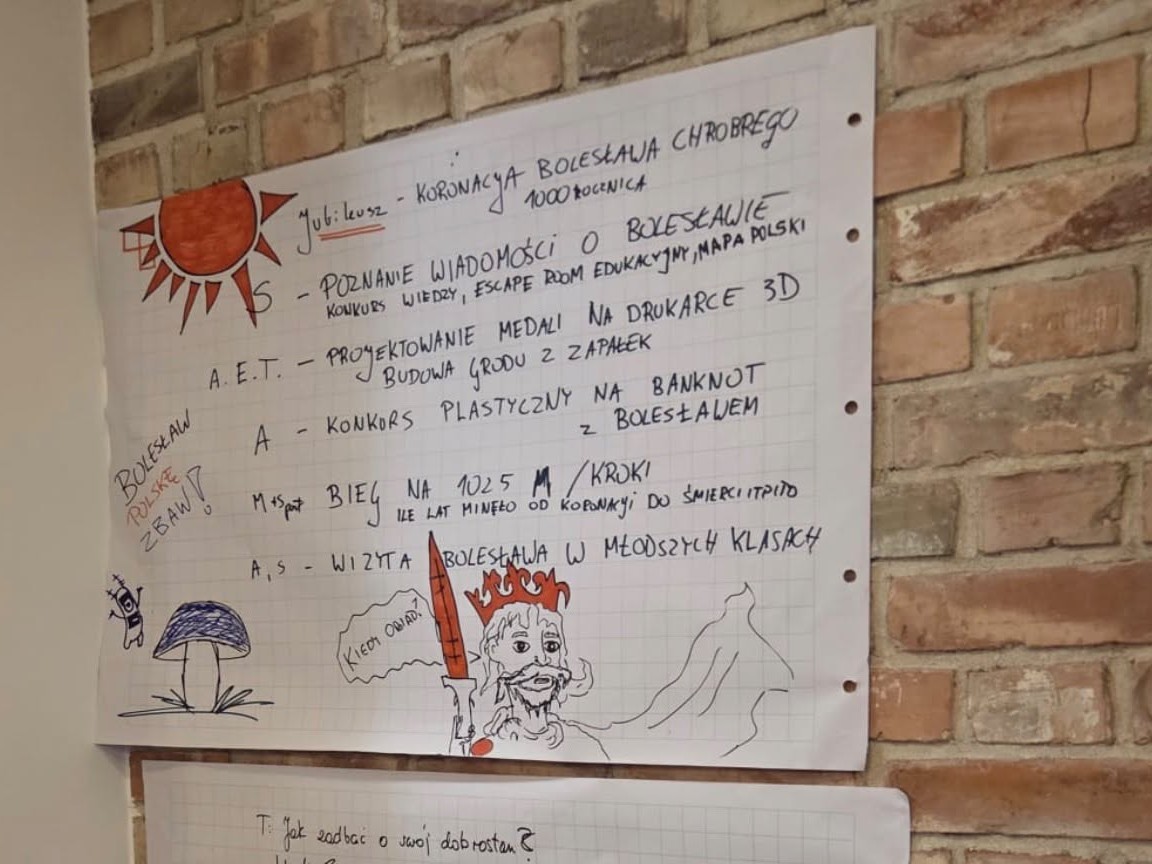 Jubileusz - KORONACJA BOLESŁAWA CHROBREGO
1000 ROCZNICA
S - POZNANIE WIADOMOŚCI O BOLESŁAWIE
KONKURS WIEDZY, ESCAPE ROOM EDUKACYJNY, MAPA POLSKI
A.E.T. - PROJEKTOWANIE MEDALI NA DRUKARCE 3D
BUDOWA GRODU Z ZAPAŁEK
A - KONKURS PLASTYCZNY NA BANKNOT
Z BOLESŁAWEM
M+Sport BIEG NA 1025 M /KROKI
ILE LAT MINĘŁO OD KORONACJI DO ŚMIERCI ITPITD
A,S - WIZYTA BOLESŁAWA W MŁODSZYCH KLASACH
BOLESŁAW
POLSKĘ
ZBAW!
KIEDY OBIAD?
T: Jak zadbać o swój dobrostan?